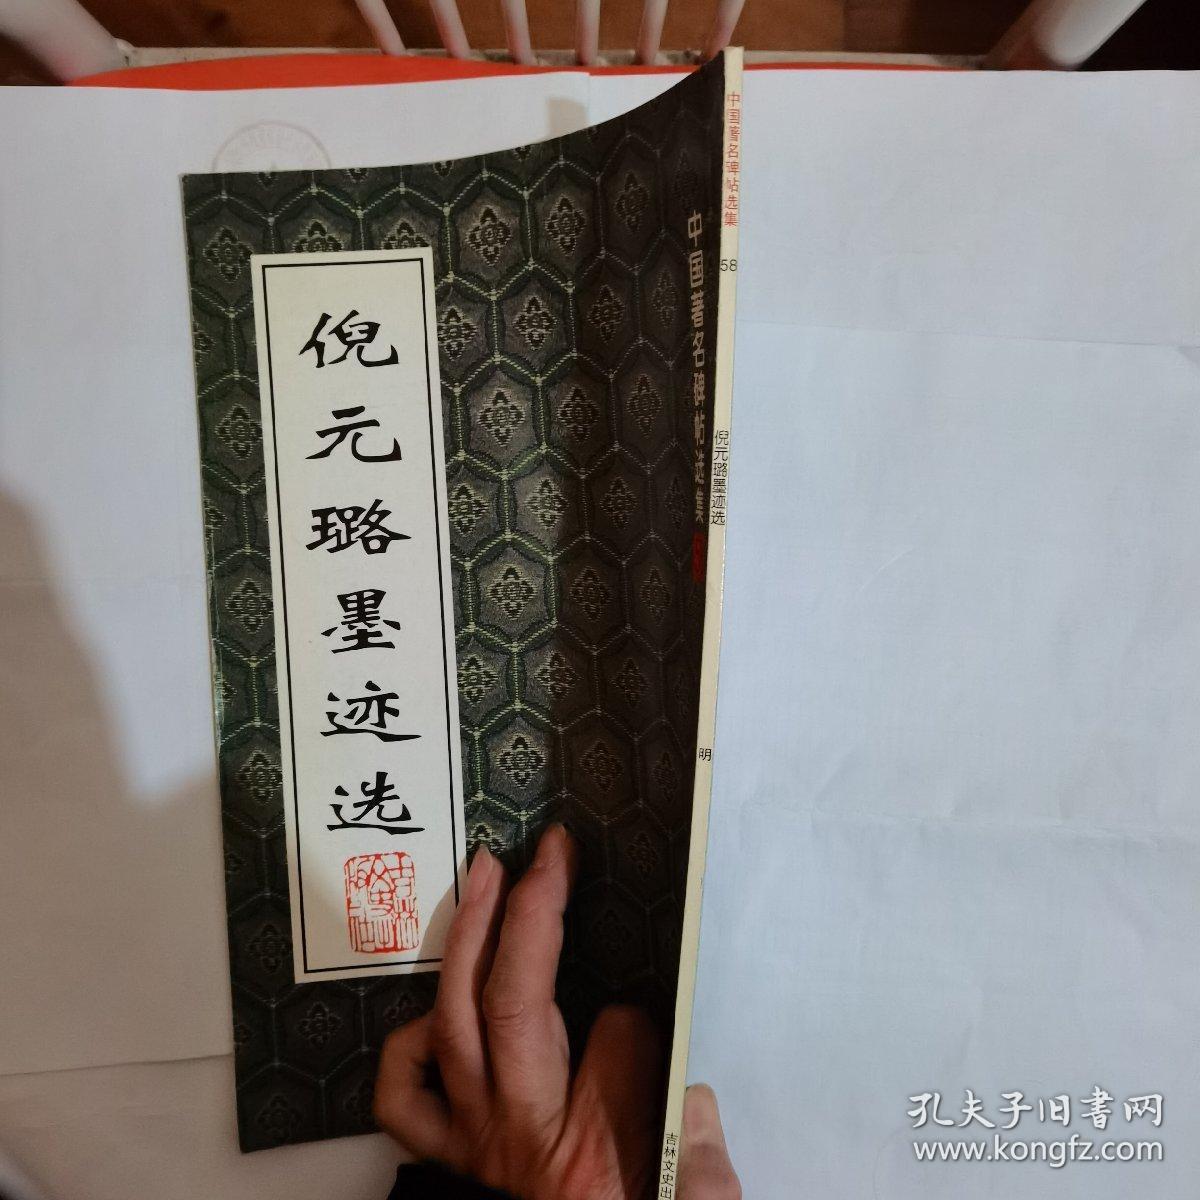 倪元璐墨迹选
中国著名碑帖选集
中国著名碑帖选集
58
倪元璐墨迹选
明
吉林文史出
孔夫子旧書网
www.kongfz.com